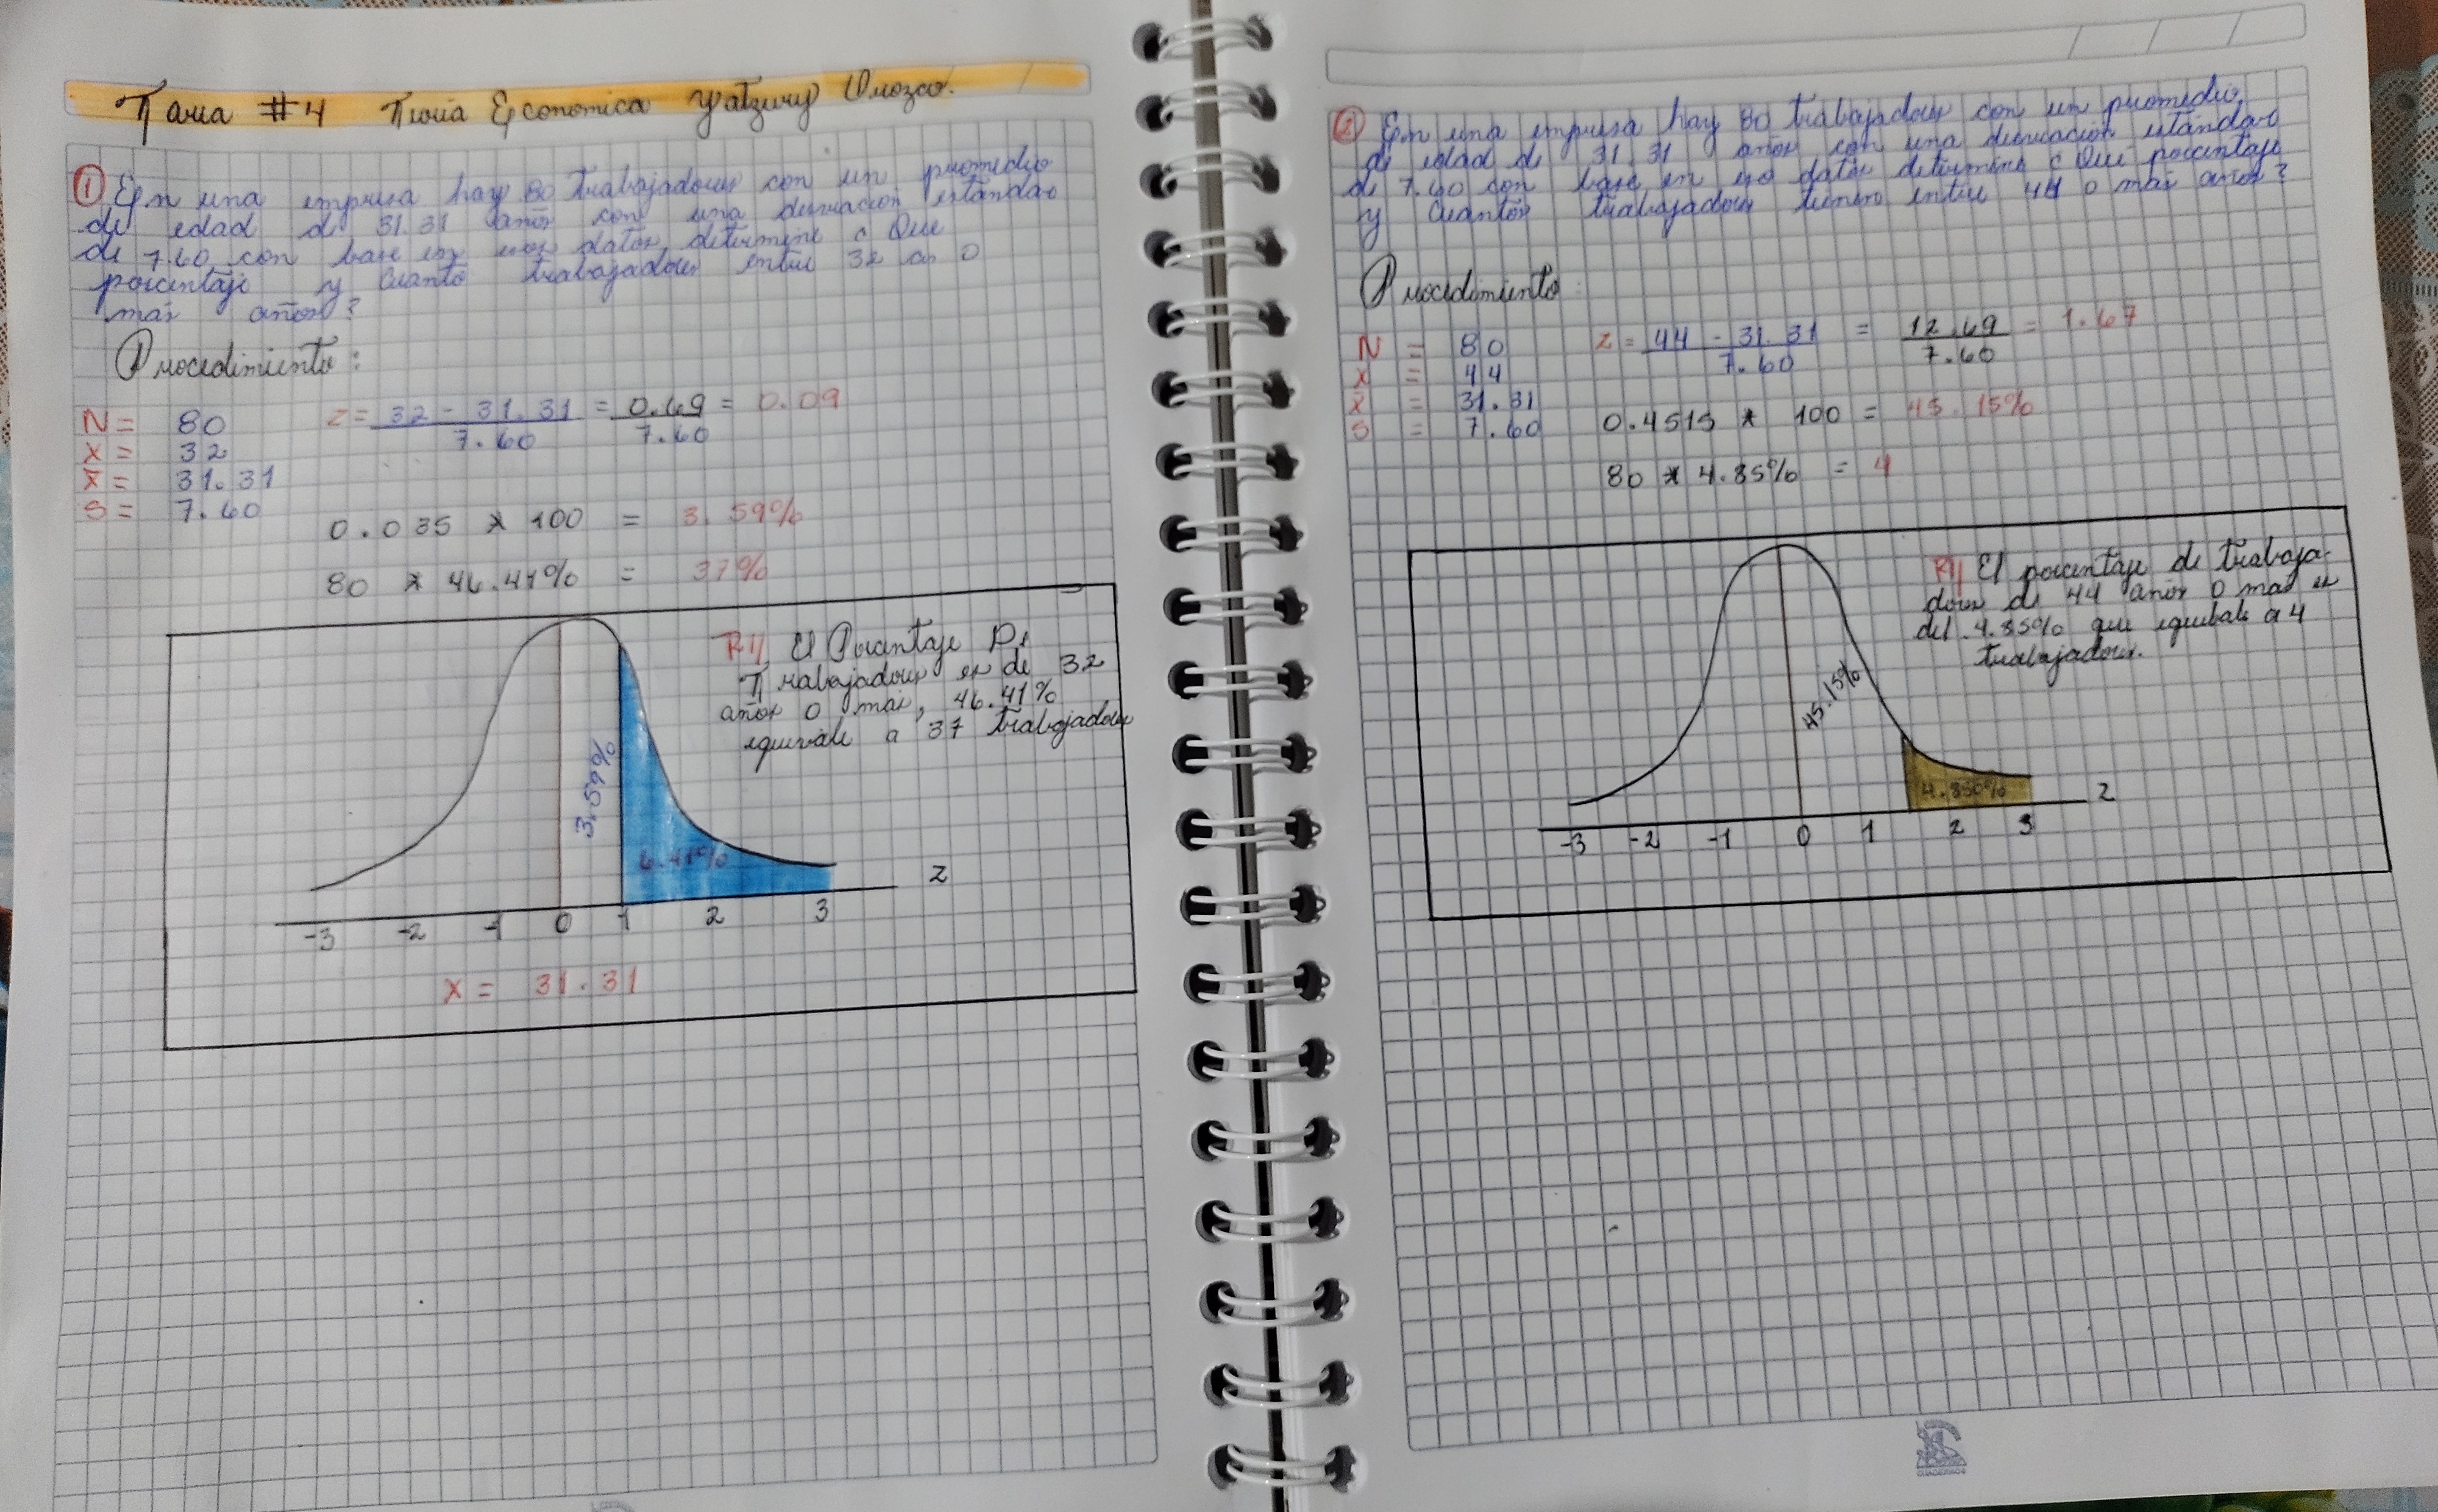 Tarea #4 Tioria Economica Yatzury Orozco.
① En una empresa hay 80 trabajadores con un promedio
de edad de 31.31 años con una desviación estándar
de 7.60 con base en esos datos, determine ¿ Que
porcentaje y Cuanto trabajadores entre 32 a o
más años?
Procedimiento:
N = 80
X = 32
x̄ = 31.31
S = 7.60
z = 32 - 31.31 / 7.60 = 0.69 / 7.60 = 0.09
0.035 * 100 = 3.59%
80 * 46.41% = 37%
R// El Porcentaje De
Trabajadores es de 32
años o más, 46.41%
equivale a 37 trabajadores
3.59%
6.41%
z
-3 -2 -1 0 1 2 3
X = 31.31
② En una empresa hay 80 trabajadores con un promedio
de edad de 31.31 años con una desviación estándar
de 7.60 con base en eso datos determine ¿ Qué porcentaje
y Cuantos trabajadores tienen entre 44 o más años?
Procedimiento:
N = 80
X = 44
x̄ = 31.31
S = 7.60
z = 44 - 31.31 / 7.60 = 12.69 / 7.60 = 1.67
0.4515 * 100 = 45.15%
80 * 4.85% = 4
R// El porcentaje de trabaja-
dores de 44 años o mas es
del 4.85% que equibale a 4
trabajadores.
45.15%
4.850%
z
-3 -2 -1 0 1 2 3